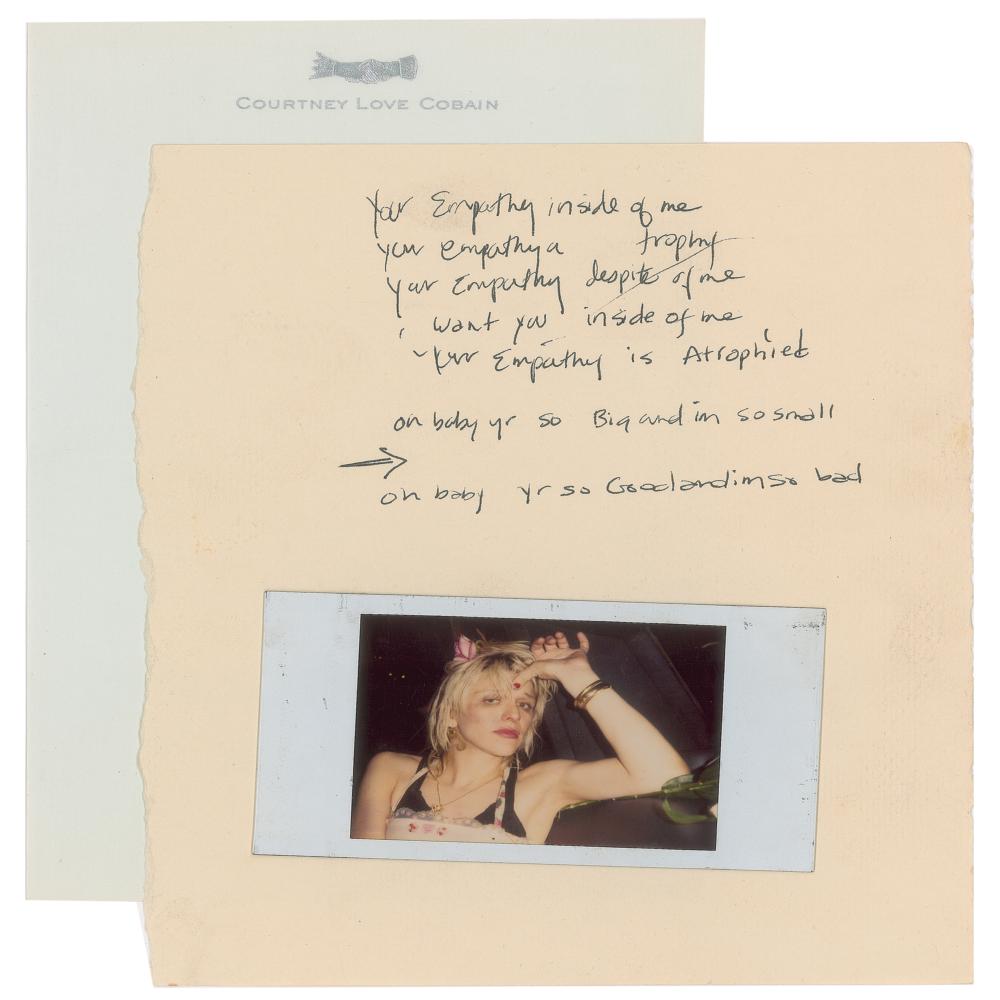 COURTNEY LOVE COBAIN
Your Empathy inside of me
your empathy a trophy
Your Empathy despite of me
i want you inside of me
Your Empathy is Atrophied
oh baby yr so Big and im so small
oh baby yr so Good and im so bad